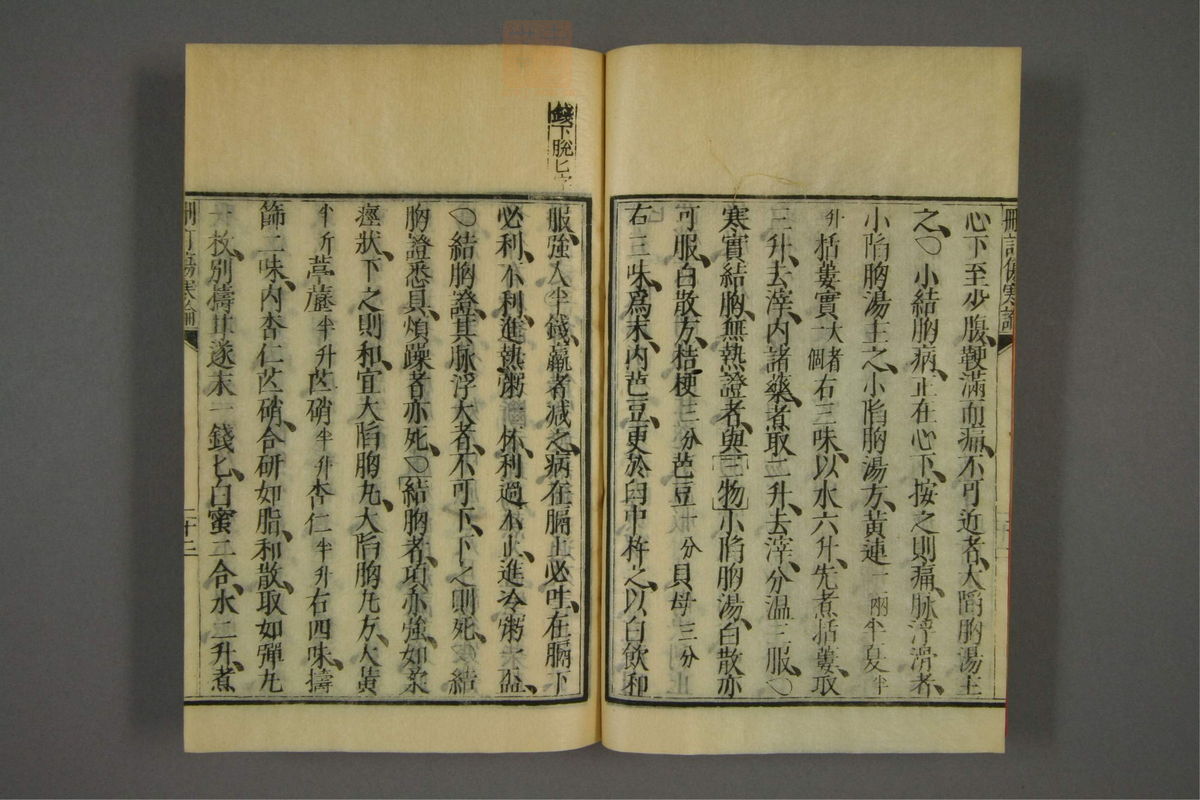 心下至少腹鞕滿而痛、不可近者、大䧟胸湯主
之、〇小結胸病、正在心下、按之則痛、脉浮滑者、
小䧟胸湯主之、小䧟胸湯方、黃連一兩半夏半
升栝蔞實大者一個右三味、以水六升、先煮栝蔞、取
三升、去滓、內諸藥、煮取二升、去滓、分温三服、〇
寒實結胸、無熱證者、與三物小䧟胸湯、白散亦
可服、白散方、桔梗三分芭豆一分貝母三分
右三味、爲末、內芭豆、更於臼中杵之、以白飲和
服、強人半錢、羸者減之、病在膈上必吐、在膈下
必利、不利、進熱粥一杯、利過不止、進冷粥一杯、
〇結胸證、其脉浮大者、不可下、下之則死、結
胸證悉具、煩躁者亦死、〇結胸者、項亦強、如柔
痓狀、下之則和、宜大䧟胸丸、大䧟胸丸方、大黃
半斤葶藶半升芒硝半升杏仁半升右四味、擣
篩二味、內杏仁芒硝、合研如脂、和散、取如彈丸
一枚、別擣甘遂末一錢匕、白蜜二合、水二升、煮
刪訂傷寒論
二十三
錢下脫匕字